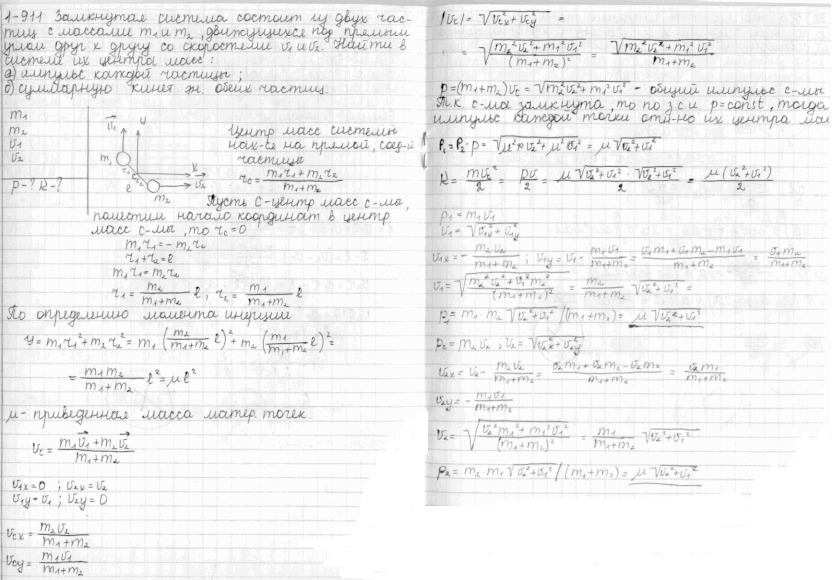 1-911 Замкнутая система состоит из двух час-
тиц с массами m₁ и m₂, движущихся под прямым
углом друг к другу со скоростями v₁ и v₂. Найти в
системе их центра масс:
а) импульс каждой частицы;
б) суммарную кинет. эн. обеих частиц.
m₁
m₂
v₁
v₂
p-? K-?
v₁ y
m₁ r₁ C r₂ x
l v₂
m₂
Центр масс системы
нах-ся на прямой, соед-й
частицы
r_c = (m₁r₁+m₂r₂)/(m₁+m₂)
Пусть C-центр масс с-мы,
поместим начало координат в центр
масс с-мы, то r_c=0
m₁r₁=-m₂r₂
r₁+r₂=l
m₁r₁=m₂r₂
r₁ = m₂/(m₁+m₂) l ; r₂ = m₁/(m₁+m₂) l
По определению момента инерции
J = m₁r₁²+m₂r₂² = m₁(m₂/(m₁+m₂) l)² + m₂(m₁/(m₁+m₂) l)² =
= m₁m₂/(m₁+m₂) l² = μl²
μ- приведенная масса матер. точек.
v_c = (m₁v₁+m₂v₂)/(m₁+m₂)
v₁x=0 ; v₂x=v₂
v₁y=v₁ ; v₂y=0
v_cx = m₂v₂/(m₁+m₂)
v_cy = m₁v₁/(m₁+m₂)
|v_c| = √(v_cx²+v_cy²) =
= √((m₂²v₂²+m₁²v₁²)/(m₁+m₂)²) = √(m₂²v₂²+m₁²v₁²)/(m₁+m₂)
p=(m₁+m₂)v_c = √(m₂²v₂²+m₁²v₁²) - общий импульс с-мы
Т.к. с-ма замкнута, то по з.с.и p=const, тогда
импульс каждой точки отн-но их центра мас
p₁=p₂=p = √(μ²v₂²+μ²v₁²) = μ√(v₂²+v₁²)
K = mv²/2 = pv/2 = μ√(v₂²+v₁²)·√(v₂²+v₁²)/2 = μ(v₂²+v₁²)/2
p₁=m₁v₁
v₁=√(v₁x²+v₁y²)
v₁x = -m₂v₂/(m₁+m₂) ; v₁y = v₁ - m₁v₁/(m₁+m₂) = (v₁m₁+v₁m₂-m₁v₁)/(m₁+m₂) = v₁m₂/(m₁+m₂)
v₁ = √((m₂²v₂²+v₁²m₂²)/(m₁+m₂)²) = m₂/(m₁+m₂) √(v₂²+v₁²) =
p₁ = m₁·m₂√(v₂²+v₁²)/(m₁+m₂) = μ√(v₂²+v₁²)
p₂=m₂v₂ ; v₂=√(v₂x²+v₂y²)
v₂x = v₂ - m₂v₂/(m₁+m₂) = (v₂m₁+v₂m₂-v₂m₂)/(m₁+m₂) = v₂m₁/(m₁+m₂)
v₂y = -m₁v₁/(m₁+m₂)
v₂ = √((v₂²m₁²+m₁²v₁²)/(m₁+m₂)²) = m₁/(m₁+m₂) √(v₂²+v₁²)
p₂ = m₂·m₁√(v₂²+v₁²)/(m₁+m₂) = μ√(v₂²+v₁²)